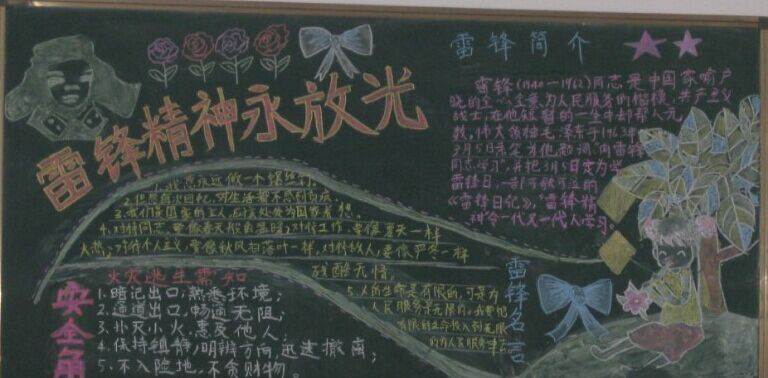 雷锋精神永放光
雷锋简介
雷锋(1940—1962)同志是中国家喻户
晓的全心全意为人民服务的楷模,共产主义
战士,在他短暂的一生中却帮人无
数,伟大领袖毛泽东于1963年
3月5日亲笔为他题词"向雷锋
同志学习",并把3月5日定为学
雷锋日,一部可歌可泣的
《雷锋日记》,"雷锋精
神"令一代又一代人学习。
1、我愿永远做一个螺丝钉。
3、我们是国家的主人,应该处处为国家着想。
4、对待同志,要像春天般的温暖,对待工作,要像夏天一样
火热,对待个人主义,要像秋风扫落叶一样,对待敌人,要像严冬一样
残酷无情。
5、人的生命是有限的,可是为
人民服务是无限的,我要把
有限的生命投入到无限
的为人民服务中去
雷锋名言
火灾逃生需知
1、暗记出口,熟悉环境;
2、通道出口,畅通无阻;
3、扑灭小火,惠及他人;
4、保持镇静,明辨方向,迅速撤离;
5、不入险地,不贪财物。
安全角